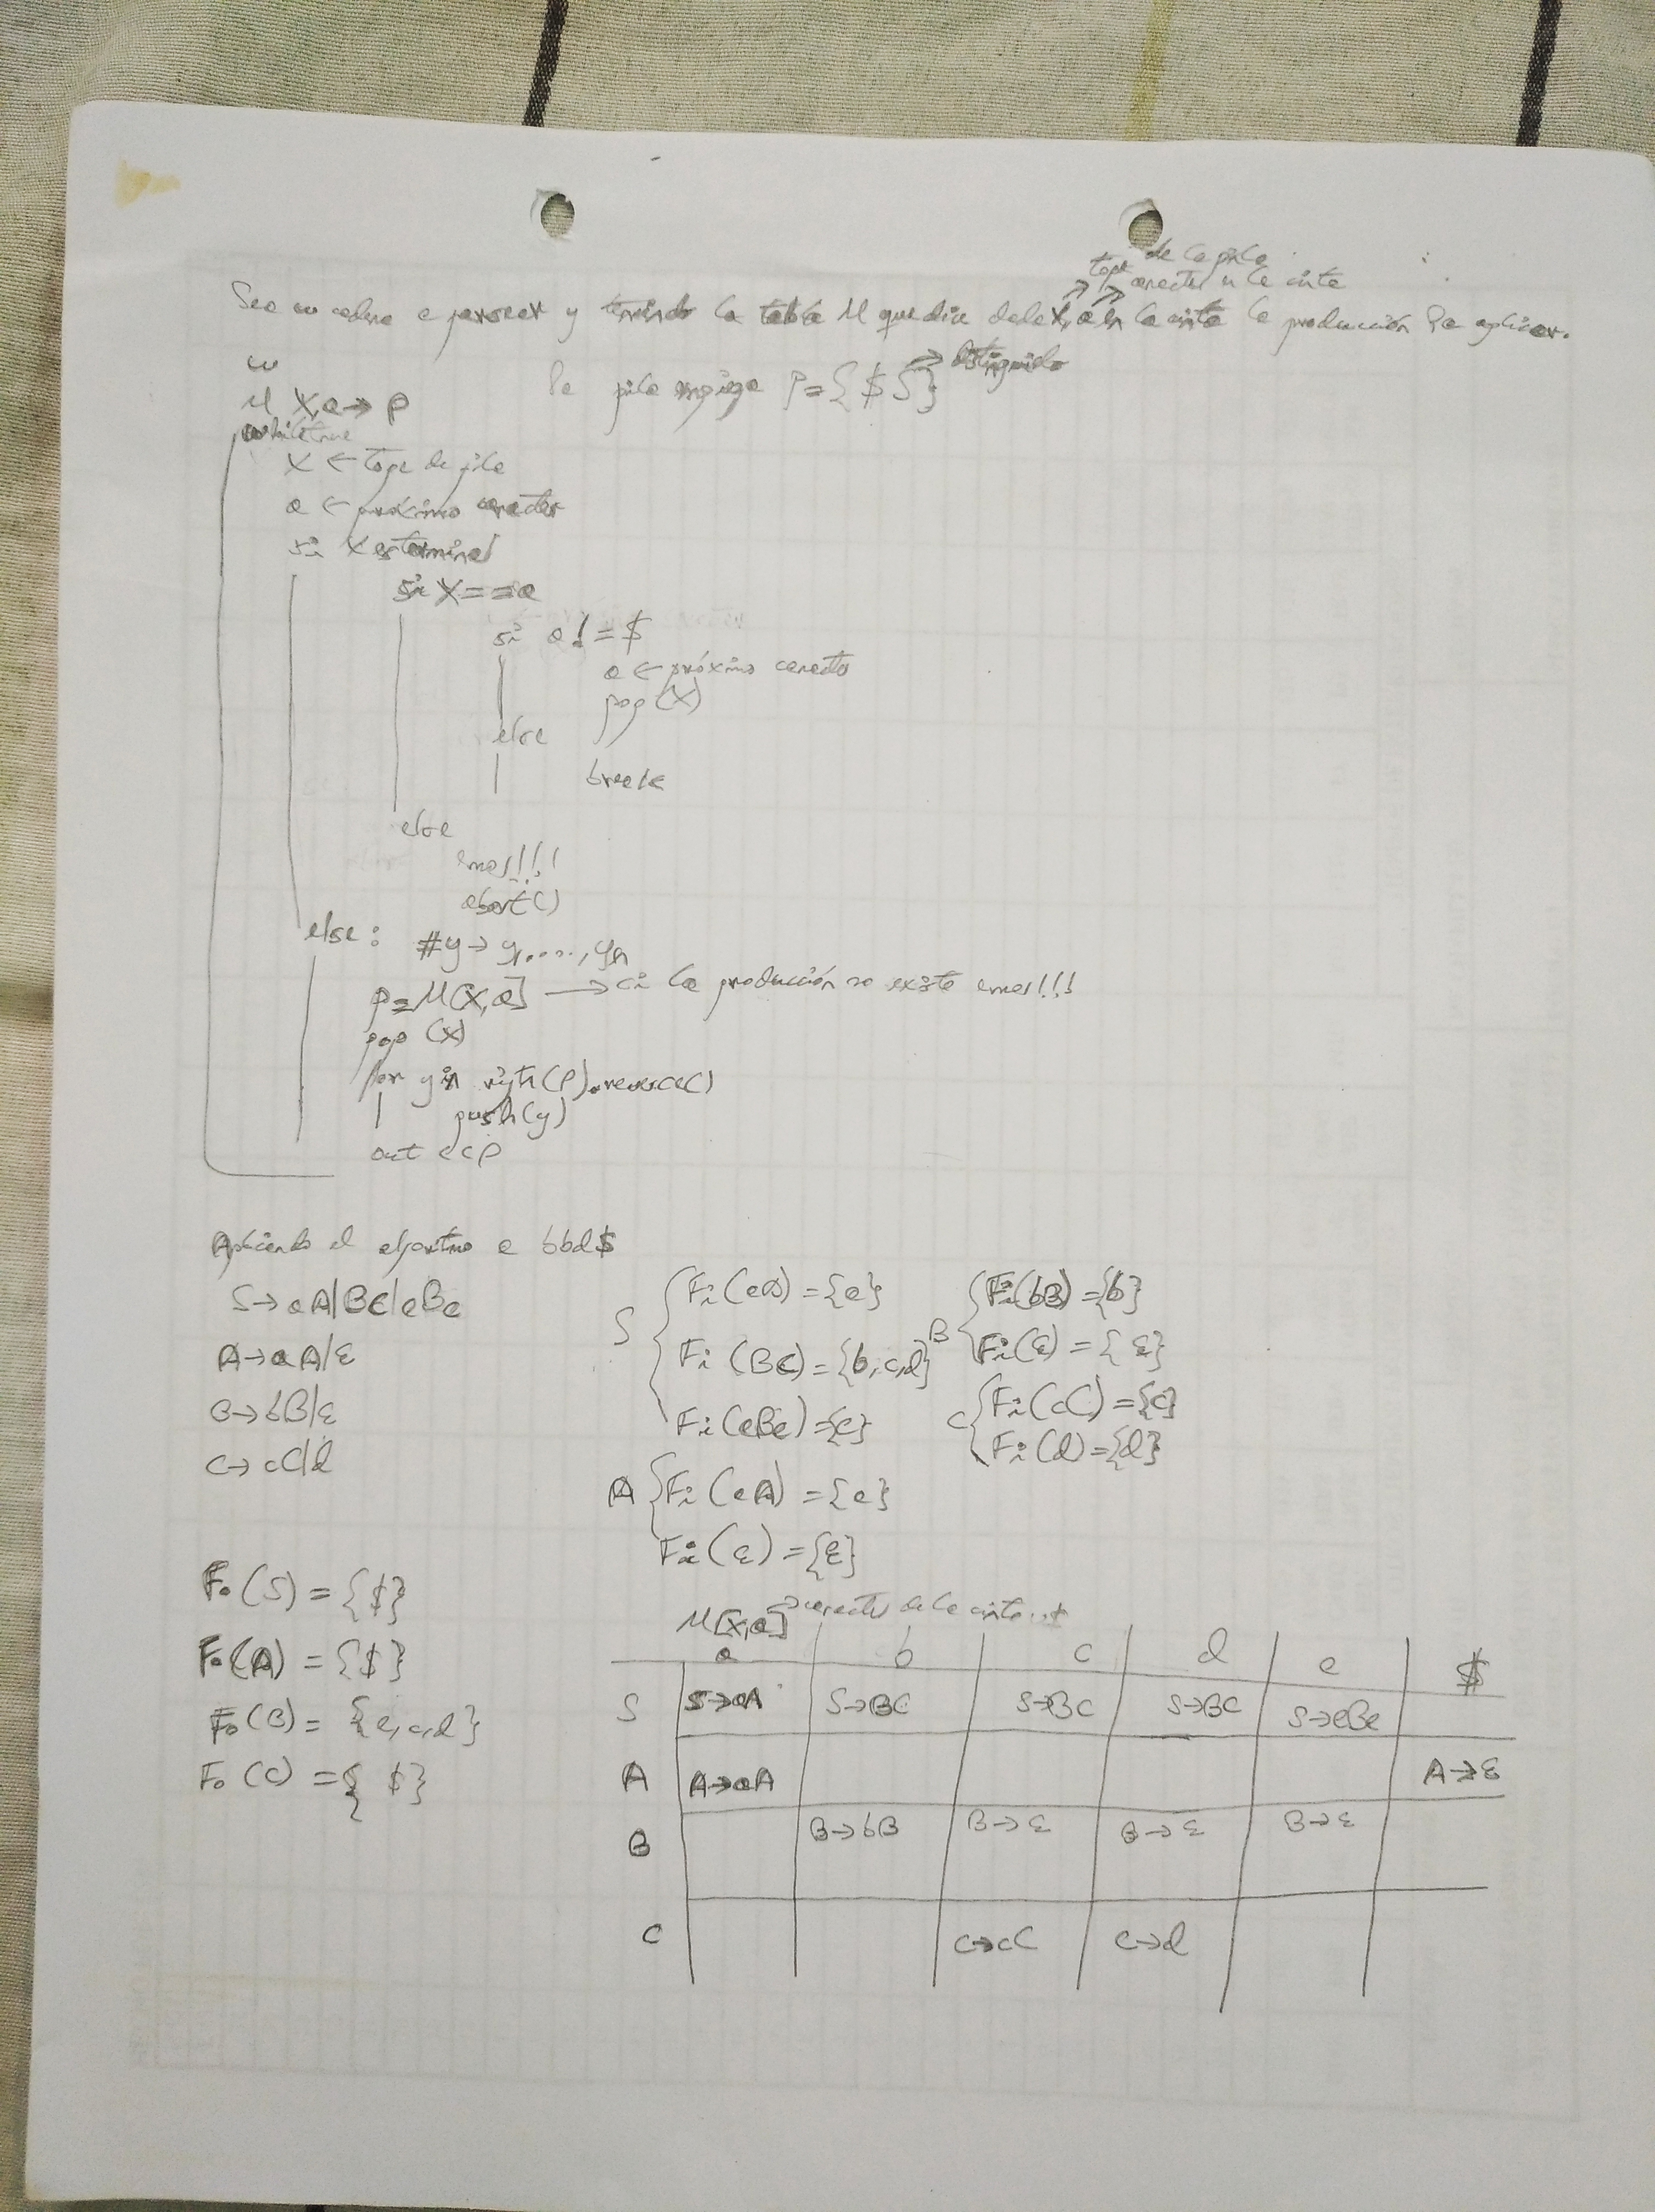 de la pila
tope caracter en la cinta
Sea w cadena a parsear y teniendo la tabla M que dice dado X, a en la cinta la producción a aplicar.
w
M X,a → P
la pila empieza P={$ S} → distinguido
while true
X ← tope de pila
a ← próximo caracter
si X es terminal
si X == a
si a != $
a ← próximo caracter
pop(X)
else
break
else
error!!!
abort()
else: #y → y1,....,yn
p = M[X,a] → si la producción no existe error!!!
pop (X)
for y in right(P).reverse()
push(y)
out << p
Aplicando el algoritmo a bbd$
S→aA|BC|eBe
A→aA|ε
B→bB|ε
C→cC|d
S { Fi(aA) = {a}
Fi(BC) = {b,c,d}
Fi(eBe) = {e}
A { Fi(aA) = {a}
Fi(ε) = {ε}
B { Fi(bB) = {b}
Fi(ε) = {ε}
C { Fi(cC) = {c}
Fi(d) = {d}
Fo(S) = {$}
Fo(A) = {$}
Fo(B) = {e,c,d}
Fo(C) = {$}
M[X,a] → caracter de la cinta
a b c d e $
S S→aA S→BC S→BC S→BC S→eBe
A A→aA A→ε
B B→bB B→ε B→ε B→ε
C C→cC C→d